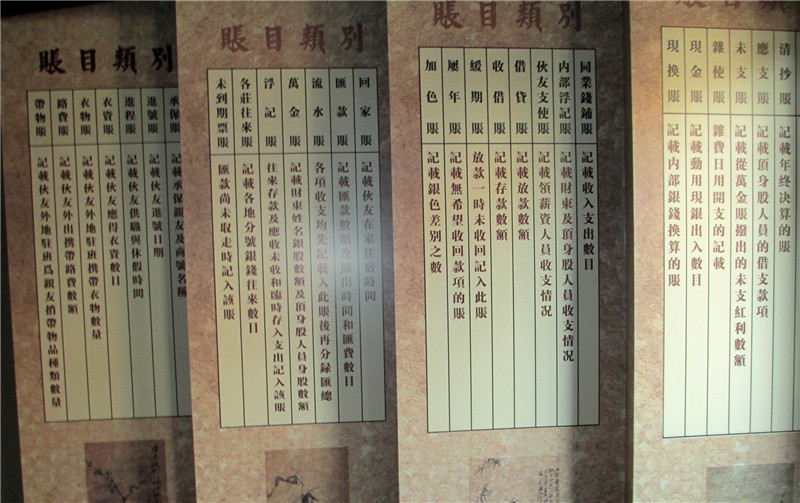 賬目類別
清抄賬 記載年終決算的賬
應支賬 記載頂身股人員的借支款項
未支賬 記載從萬金賬撥出的未支紅利數額
雜使賬 雜費日用開支的記載
現金賬 記載動用現銀出入數目
現換賬 記載内部銀錢換算的賬
賬目類別
同業錢鋪賬 記載收入支出數目
内部浮記賬 記載財東及頂身股人員收支情況
伙友支使賬 記載領薪資人員收支情況
借貸賬 記載放款數額
收借賬 記載存款數額
緩期賬 放款一時未收回記入此賬
屢年賬 記載無希望收回款項的賬
加色賬 記載銀色差別之數
賬目類別
回家賬 記載伙友在家住宿時間
匯款賬 記載匯款數額及匯出時間和匯費數目
流水賬 各項收支均先記載入此賬後再分録匯總
萬金賬 記載財東姓名銀股數額及頂身股人員身股數額
浮記賬 往來存款及應收未收和臨時存入支出記入該賬
各莊往來賬 記載各地分號銀錢往來數目
未到期票賬 匯款尚未取走時記入該賬
賬目類別
承保賬 記載承保親友及商號名稱
進號賬 記載伙友進號日期
進程賬 記載伙友供職與休假時間
衣資賬 記載伙友應得衣資數目
衣物賬 記載伙友外地駐班携帶衣物數量
路費賬 記載伙友外出携帶路費數額
帶物賬 記載伙友外地駐班爲銀友捎帶物品種類數量